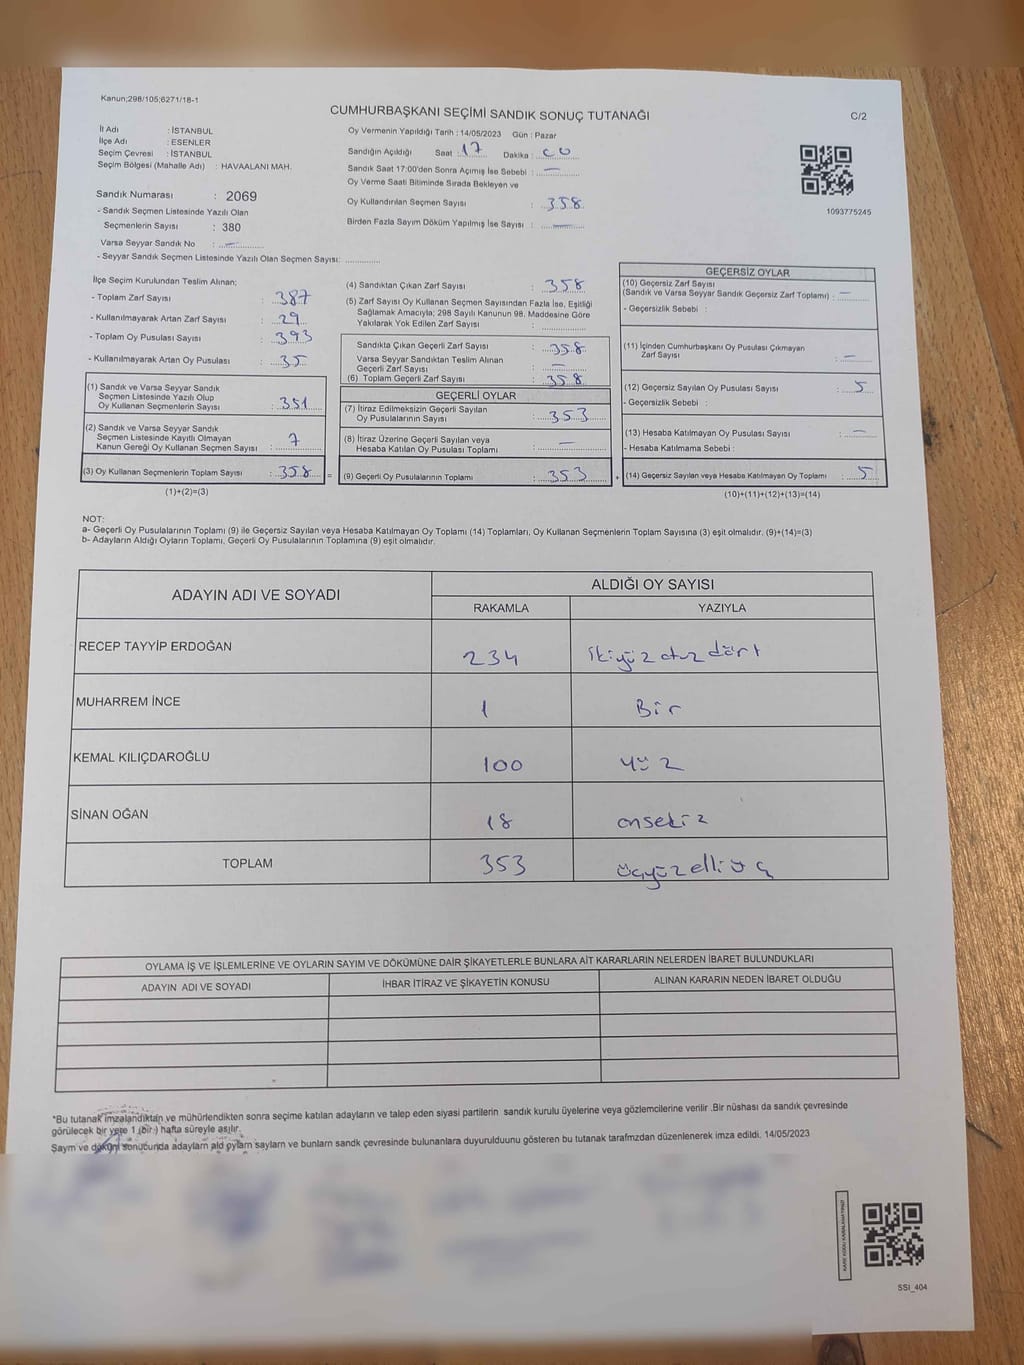 Kanun;298/105;6271/18-1
CUMHURBAŞKANI SEÇİMİ SANDIK SONUÇ TUTANAĞI
C/2
İl Adı : İSTANBUL
İlçe Adı : ESENLER
Seçim Çevresi : İSTANBUL
Seçim Bölgesi (Mahalle Adı) : HAVAALANI MAH.
Oy Vermenin Yapıldığı Tarih : 14/05/2023 Gün : Pazar
Sandığın Açıldığı Saat : 17 Dakika : 00
Sandık Saat 17:00'den Sonra Açımış İse Sebebi : —
Oy Verme Saati Bitiminde Sırada Bekleyen ve
Oy Kullandırılan Seçmen Sayısı : 358
Birden Fazla Sayım Döküm Yapılmış İse Sayısı : —
1093775245
Sandık Numarası : 2069
- Sandık Seçmen Listesinde Yazılı Olan
Seçmenlerin Sayısı : 380
Varsa Seyyar Sandık No : —
- Seyyar Sandık Seçmen Listesinde Yazılı Olan Seçmen Sayısı: ............
İlçe Seçim Kurulundan Teslim Alınan;
- Toplam Zarf Sayısı : 387
- Kullanılmayarak Artan Zarf Sayısı : 29
- Toplam Oy Pusulası Sayısı : 393
- Kullanılmayarak Artan Oy Pusulası : 35
(1) Sandık ve Varsa Seyyar Sandık
Seçmen Listesinde Yazılı Olup
Oy Kullanan Seçmenlerin Sayısı : 351
(2) Sandık ve Varsa Seyyar Sandık
Seçmen Listesinde Kayıtlı Olmayan
Kanun Gereği Oy Kullanan Seçmen Sayısı : 7
(3) Oy Kullanan Seçmenlerin Toplam Sayısı : 358 =
(1)+(2)=(3)
(4) Sandıktan Çıkan Zarf Sayısı : 358
(5) Zarf Sayısı Oy Kullanan Seçmen Sayısından Fazla İse, Eşitliği
Sağlamak Amacıyla; 298 Sayılı Kanunun 98. Maddesine Göre
Yakılarak Yok Edilen Zarf Sayısı : ............
Sandıkta Çıkan Geçerli Zarf Sayısı : 358
Varsa Seyyar Sandıktan Teslim Alınan
Geçerli Zarf Sayısı : —
(6) Toplam Geçerli Zarf Sayısı : 358
GEÇERLİ OYLAR
(7) İtiraz Edilmeksizin Geçerli Sayılan
Oy Pusulalarının Sayısı : 353
(8) İtiraz Üzerine Geçerli Sayılan veya
Hesaba Katılan Oy Pusulaları Toplamı : —
(9) Geçerli Oy Pusulalarının Toplamı : 353 +
GEÇERSİZ OYLAR
(10) Geçersiz Zarf Sayısı
(Sandık ve Varsa Seyyar Sandık Geçersiz Zarf Toplamı) : —
- Geçersizlik Sebebi :
(11) İçinden Cumhurbaşkanı Oy Pusulası Çıkmayan
Zarf Sayısı : —
(12) Geçersiz Sayılan Oy Pusulası Sayısı : 5
- Geçersizlik Sebebi :
(13) Hesaba Katılmayan Oy Pusulası Sayısı : —
- Hesaba Katılmama Sebebi :
(14) Geçersiz Sayılan veya Hesaba Katılmayan Oy Toplamı : 5
(10)+(11)+(12)+(13)=(14)
NOT:
a- Geçerli Oy Pusulalarının Toplamı (9) ile Geçersiz Sayılan veya Hesaba Katılmayan Oy Toplamı (14) Toplamları, Oy Kullanan Seçmenlerin Toplam Sayısına (3) eşit olmalıdır. (9)+(14)=(3)
b- Adayların Aldığı Oyların Toplamı, Geçerli Oy Pusulalarının Toplamına (9) eşit olmalıdır.
ADAYIN ADI VE SOYADI
ALDIĞI OY SAYISI
RAKAMLA YAZIYLA
RECEP TAYYİP ERDOĞAN 234 ikiyüz otuz dört
MUHARREM İNCE 1 Bir
KEMAL KILIÇDAROĞLU 100 yüz
SİNAN OĞAN 18 onsekiz
TOPLAM 353 üçyüz elli üç
OYLAMA İŞ VE İŞLEMLERİNE VE OYLARIN SAYIM VE DÖKÜMÜNE DAİR ŞİKAYETLERLE BUNLARA AİT KARARLARIN NELERDEN İBARET BULUNDUKLARI
ADAYIN ADI VE SOYADI İHBAR İTİRAZ VE ŞİKAYETİN KONUSU ALINAN KARARIN NEDEN İBARET OLDUĞU
*Bu tutanak imzalandıktan ve mühürlendikten sonra seçime katılan adayların ve talep eden siyasi partilerin sandık kurulu üyelerine veya gözlemcilerine verilir .Bir nüshası da sandık çevresinde
görülecek bir yere 1 (bir ) hafta süreyle asılır.
Sayım ve döküm sonucunda adaylarn ald oylarn saylarn ve bunlarn sandk çevresinde bulunanlara duyurulduunu gösteren bu tutanak tarafmzdan düzenlenerek imza edildi. 14/05/2023
SSI_404